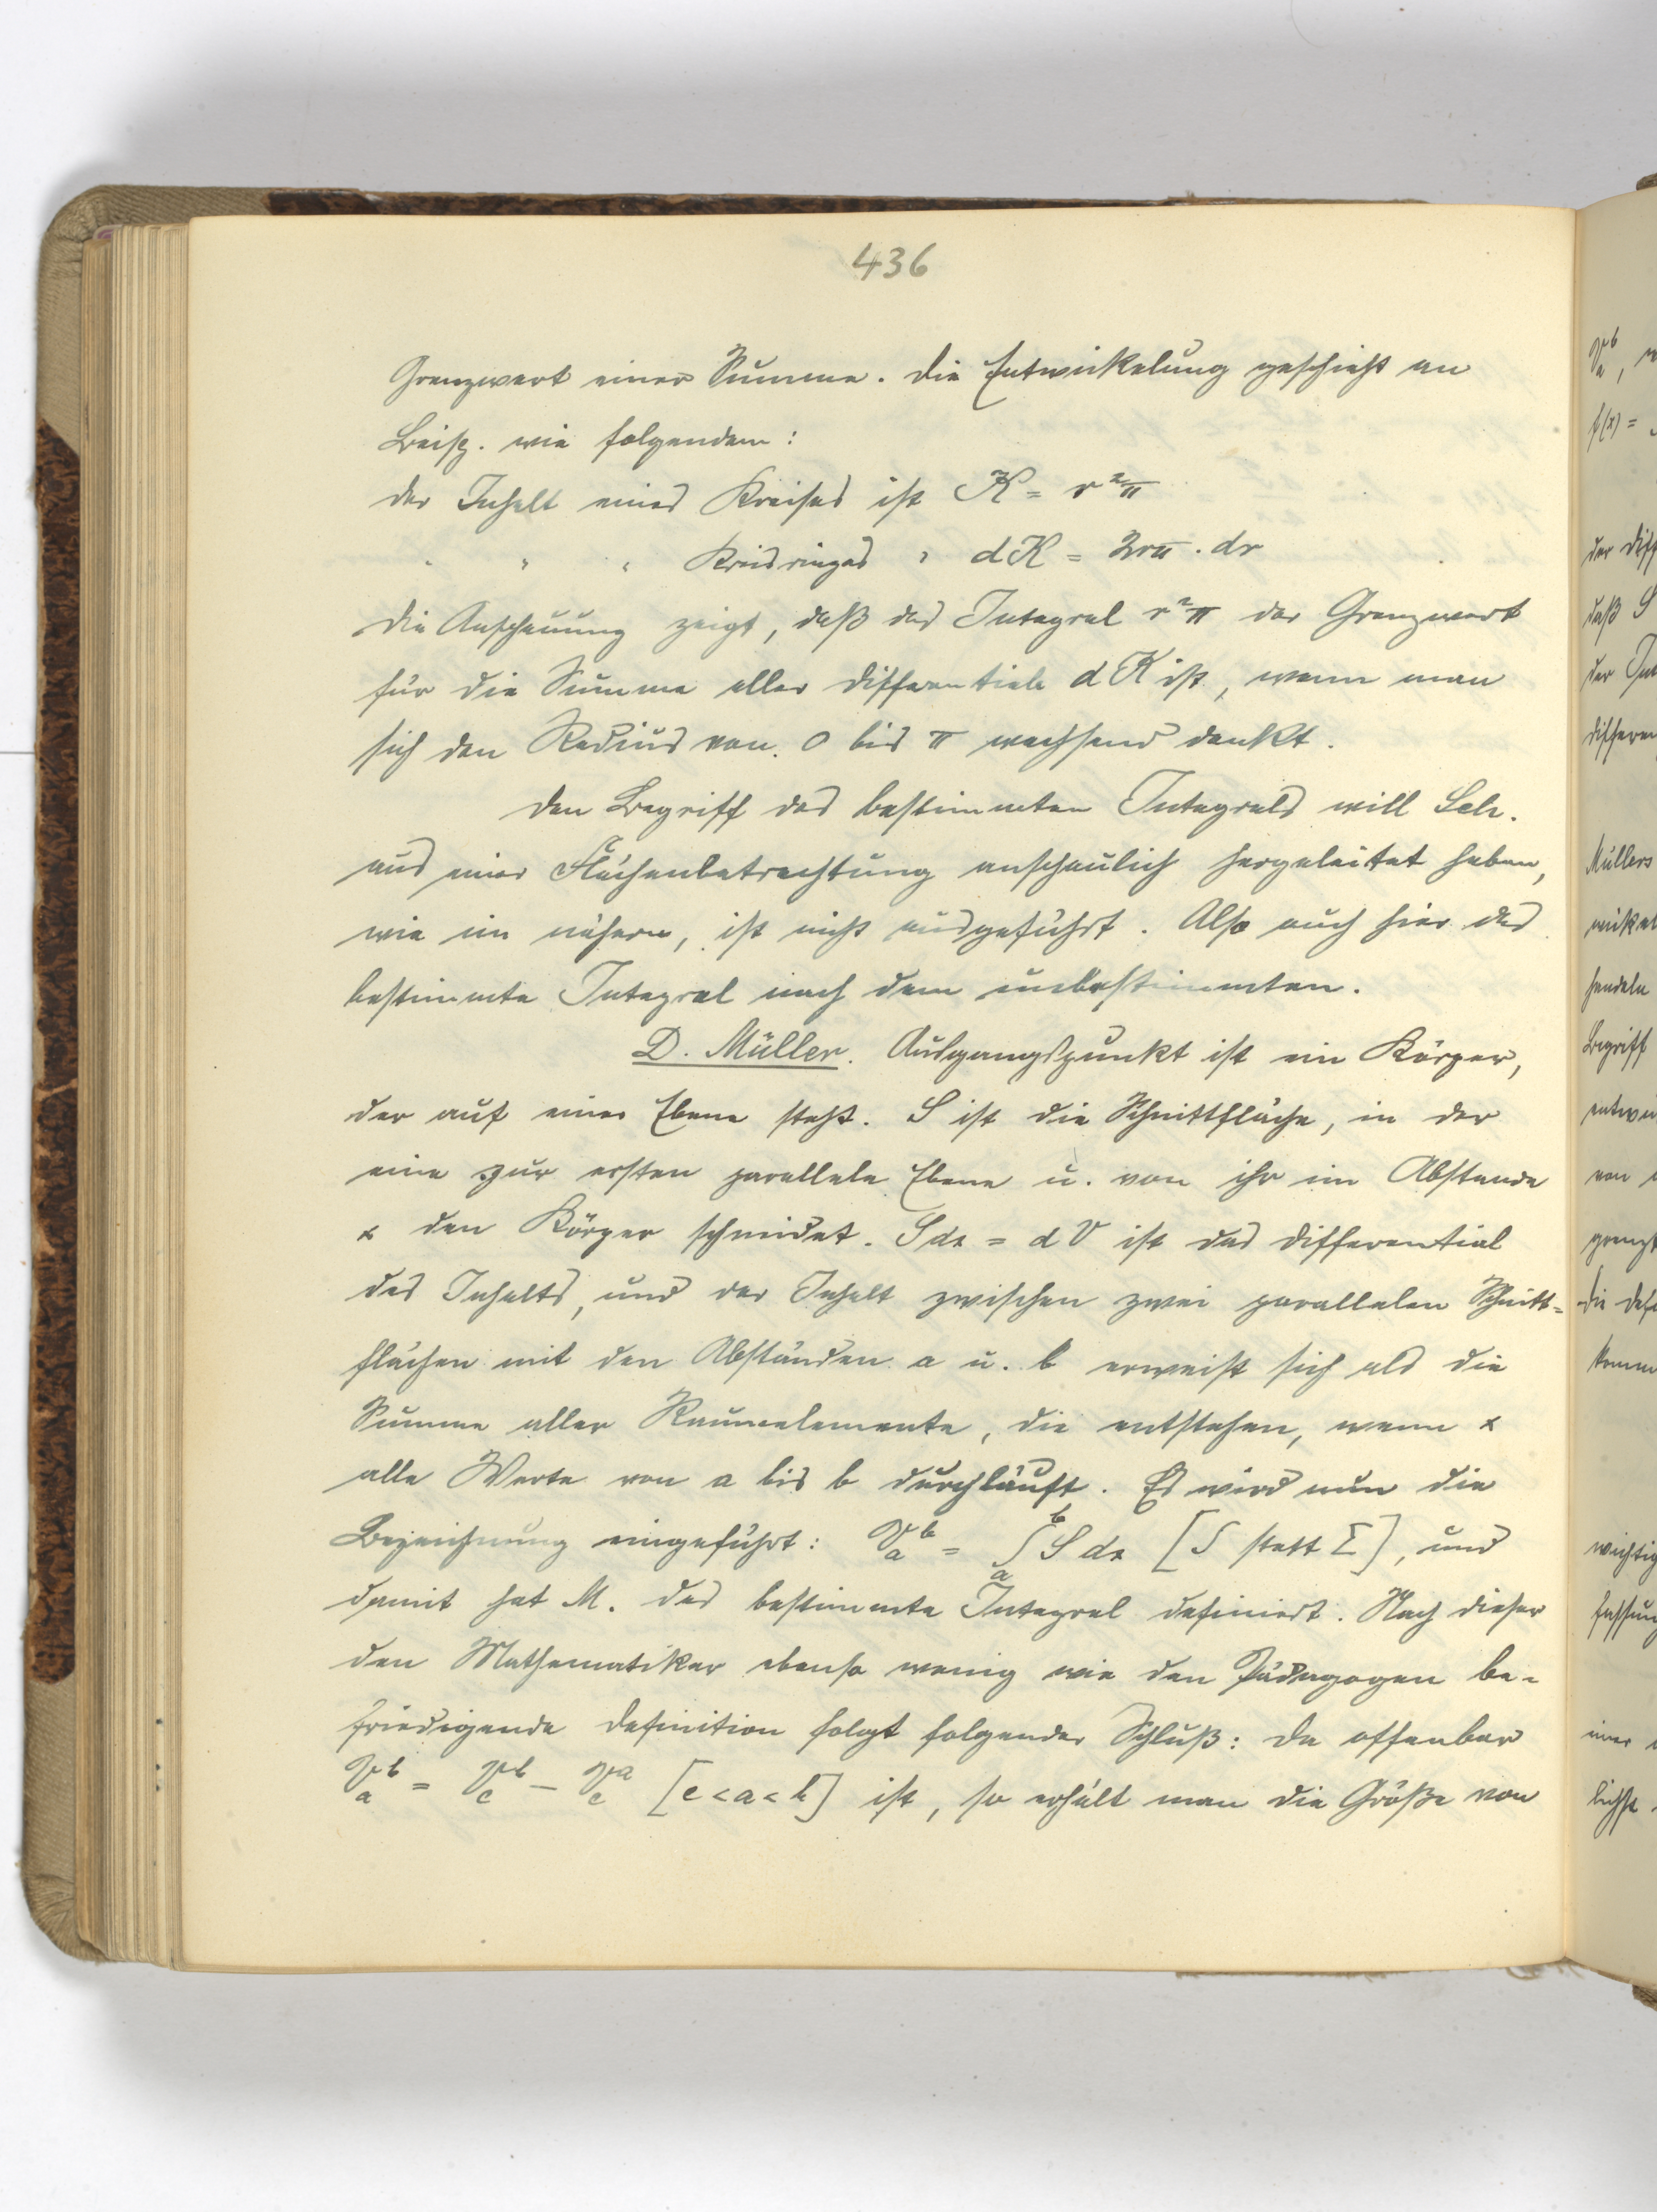 436
Grenzwert einer Summe. Die Entwickelung geschieht an
Beisp. wie folgendem:
Der Inhalt eines Kreises ist K = r²π
" " " Kreisringes " dK = 2rπ · dr
Die Anschauung zeigt, daß das Integral r²π der Grenzwert
für die Summe aller Differentiale dK ist, wenn man
sich den Radius von 0 bis π wachsend denkt.
Den Begriff des bestimmten Integrals will Sch.
aus einer Flächenbetrachtung anschaulich hergeleitet haben,
wie im nähern, ist nicht ausgeführt. Also auch hier das
bestimmte Integral nach dem unbestimmten.
D. Müller. Ausgangspunkt ist ein Körper,
der auf einer Ebene steht. S ist die Schnittfläche, in der
eine zur ersten parallele Ebene u. von ihr im Abstande
x den Körper schneidet. S dx = dV ist das Differential
des Inhalts, und der Inhalt zwischen zwei parallelen Schnitt=
flächen mit den Abständen a u. b erweist sich als die
Summe aller Raumelemente, die entstehen, wenn x
alle Werte von a bis b durchläuft. Es wird nun die
Bezeichnung eingeführt: V_a^b = ∫_a^b S dx [∫ statt Σ], und
damit hat M. das bestimmte Integral definiert. Nach dieser
den Mathematiker ebenso wenig wie den Pädagogen be=
friedigende Definition folgt folgender Schluß: Da offenbar
V_a^b = V_c^b − V_c^a [c<a<b] ist, so erhält man die Größe von
V_a^b,
f(x) =
der Diff
daß S
der
Differen
Müllers
wickel
handeln
Begriff
entwi
von
grenzt
Die Defi
komm
wichtig
fassung